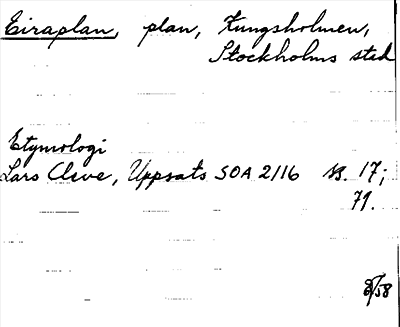 Eiraplan, plan, Kungsholmen,
Stockholms stad
Etymologi
Lars Cleve, Uppsats SOA 2/16 ss. 17;
71.
8/58